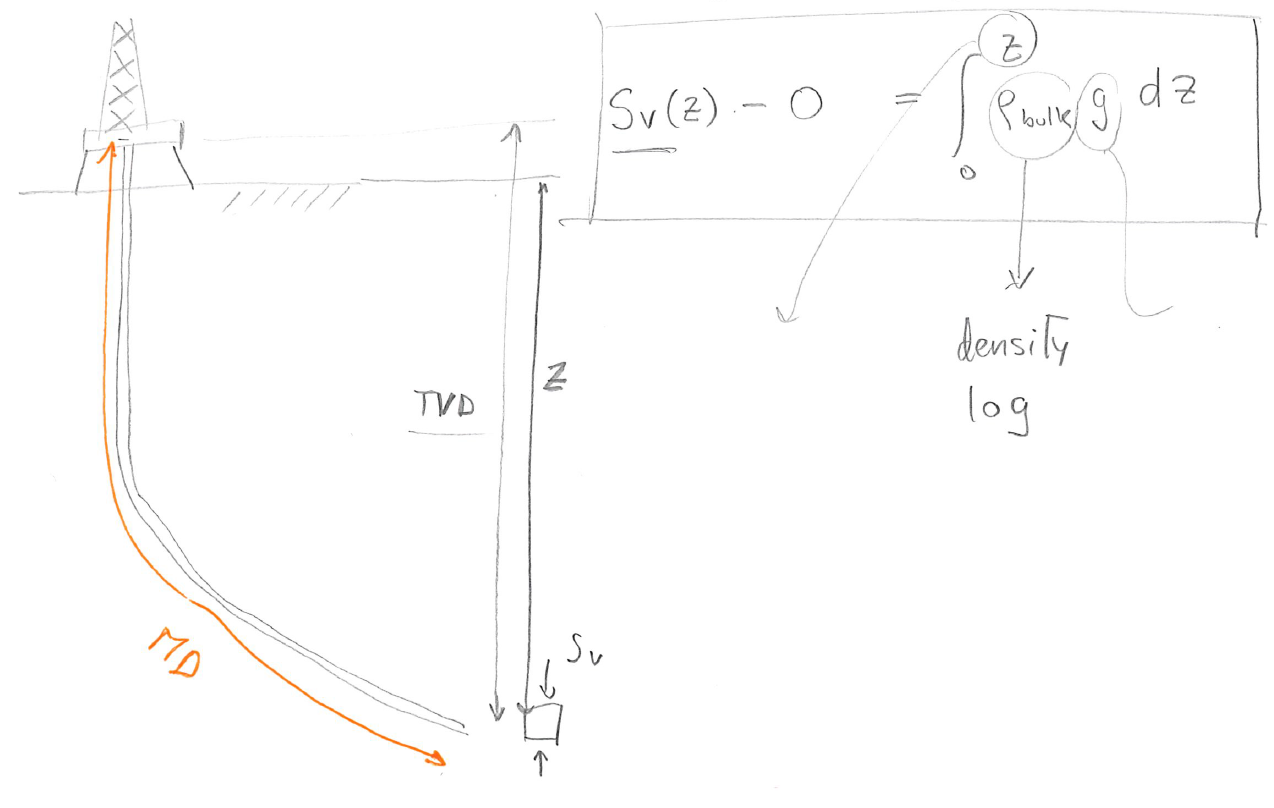 Sv(z) - 0 = ∫₀ᶻ ρbulk g dz
density
log
TVD
z
Sv
MD